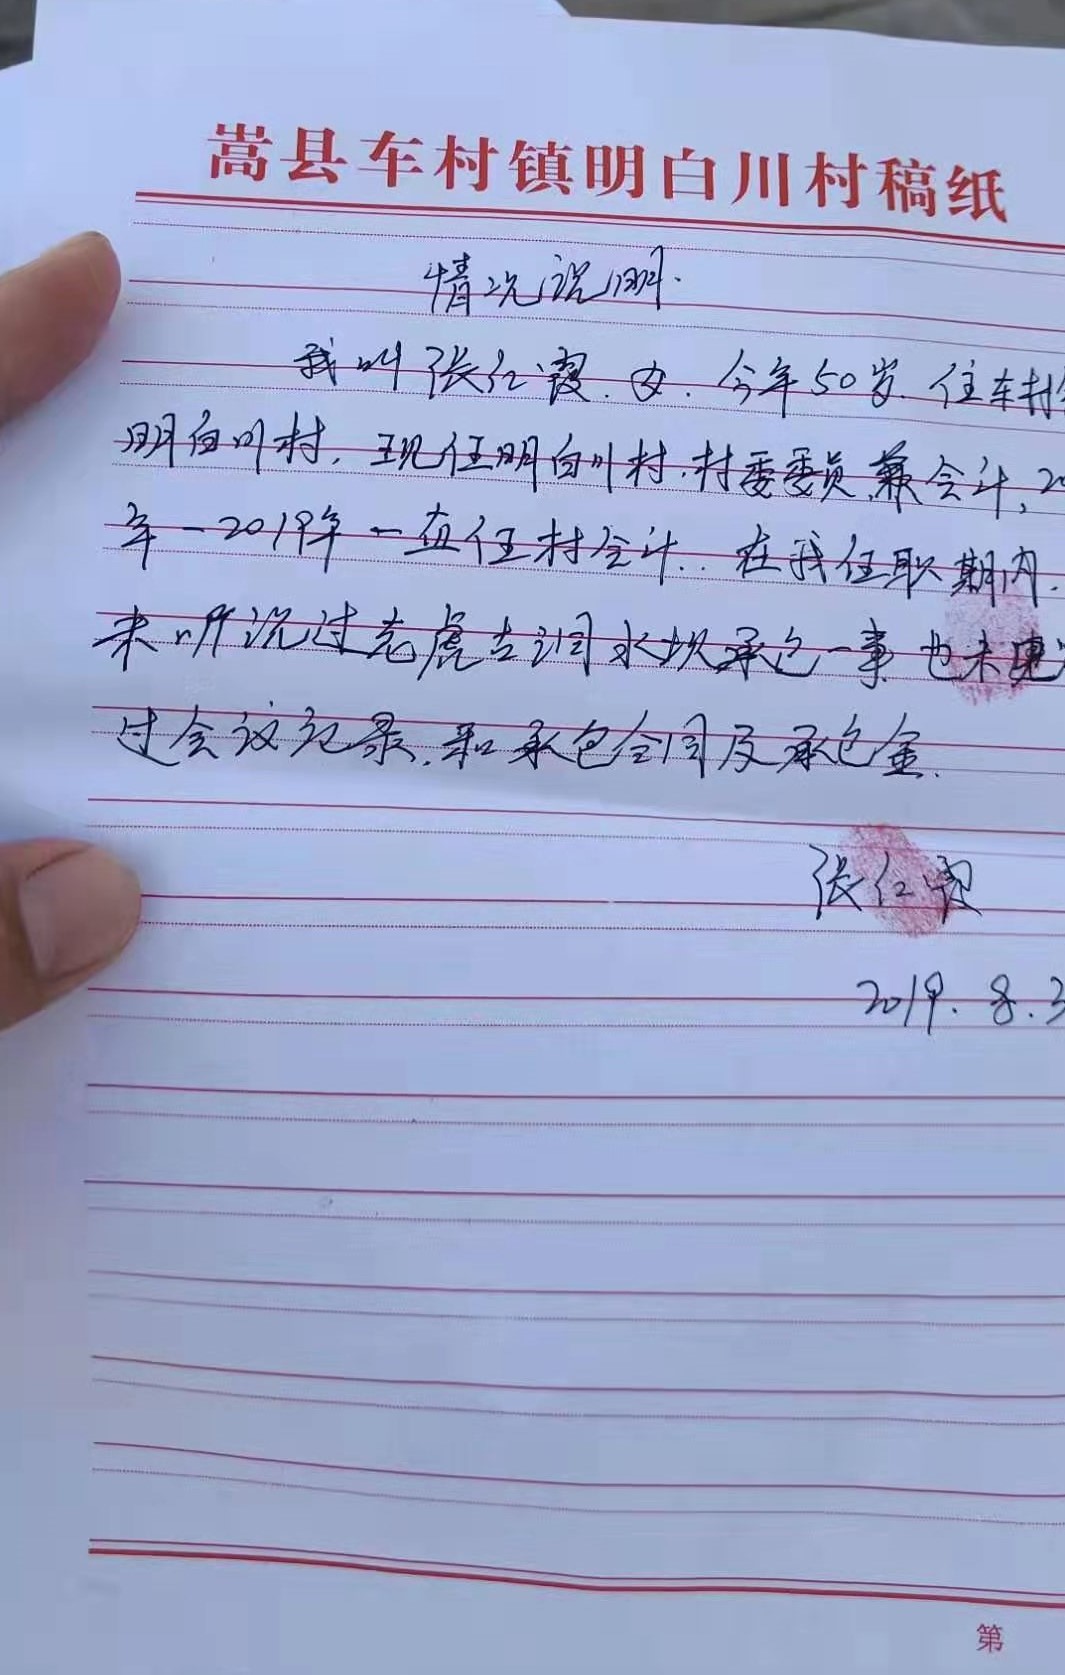 嵩县车村镇明白川村稿纸
情况说明.
我叫张仁霞.女.今年50岁.住车村
明白川村.现任明白川村.村委委员兼会计,
年-2019年一直任村会计..在我任职期内.
未听说过老虎 涧水坝承包一事也未见
过会议记录.和承包合同及承包金.
张仁霞
2019.8.3
第